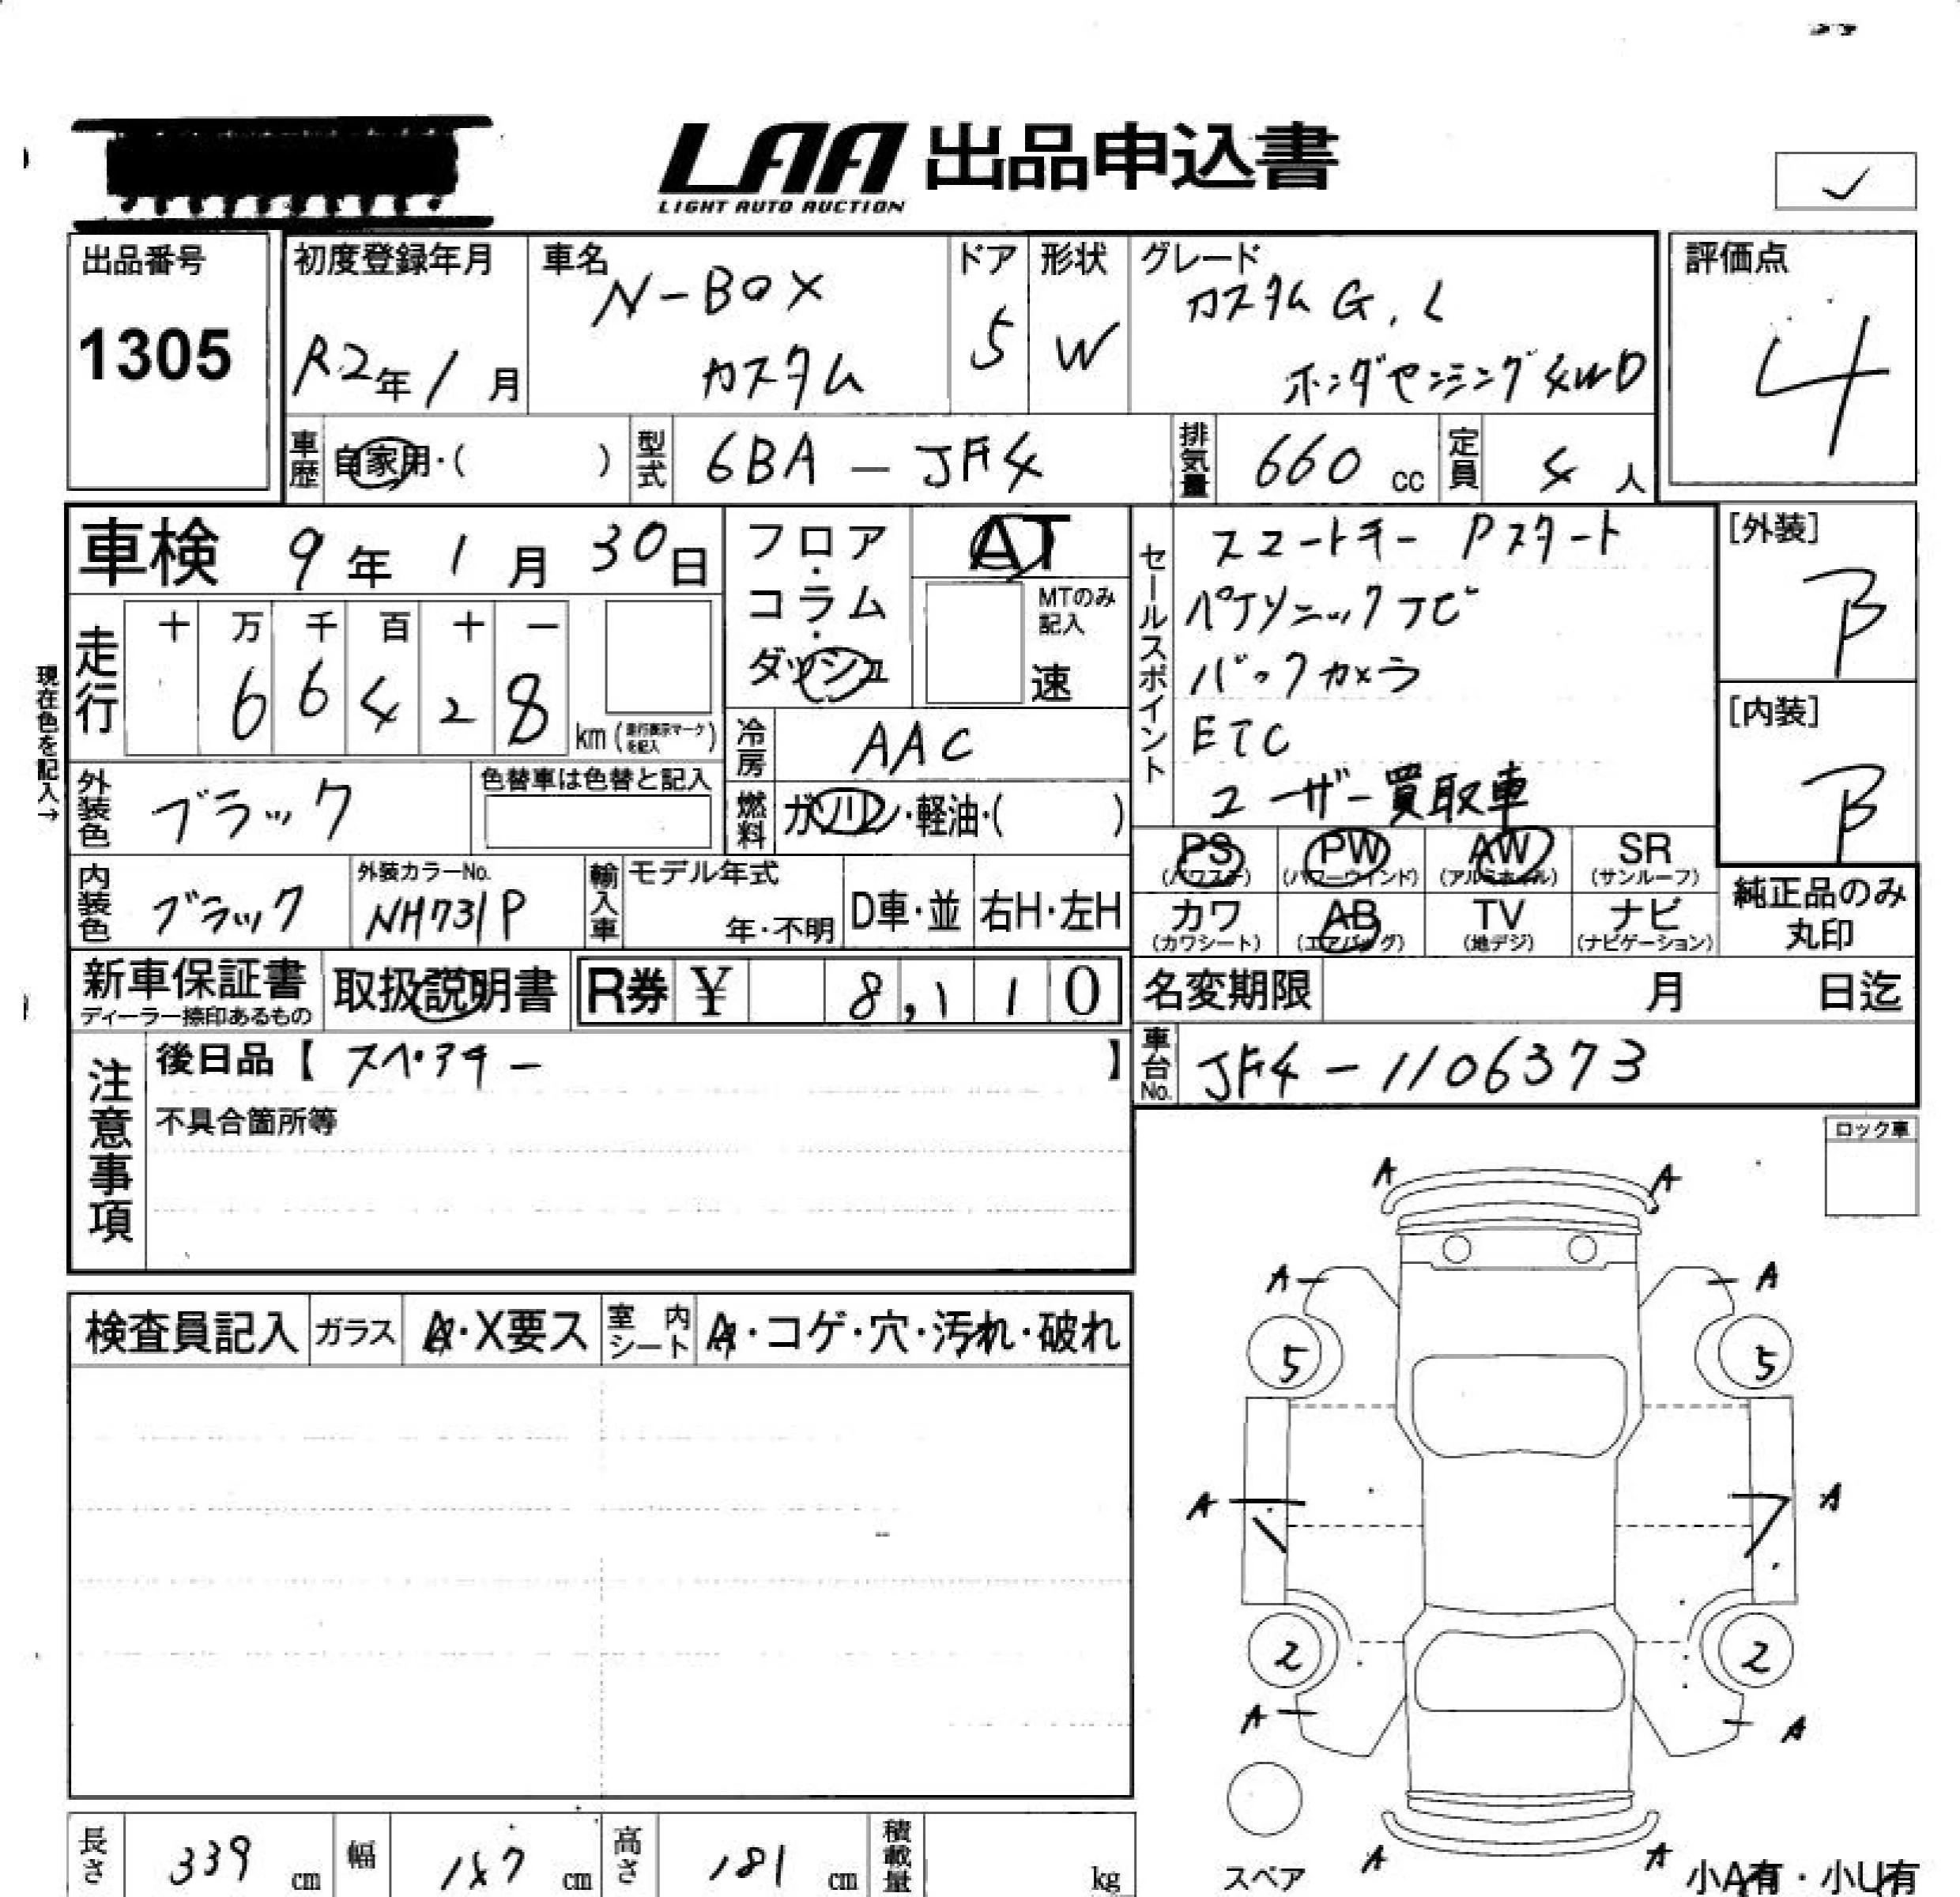 LAA 出品申込書
LIGHT AUTO AUCTION
✓
出品番号
1305
初度登録年月
R2年1月
車名
N-BOX
カスタム
ドア
5
形状
W
グレード
カスタムG.L
ホンダセンシング4WD
評価点
4
車歴
自家用・( )
型式
6BA - JF4
排気量
660 cc
定員
4人
車検 9年1月30日
走行
十 万 千 百 十 一
6 6 4 2 8 km (走行表示マークを記入)
現在色を記入→
フロア・コラム・ダッシュ
AT
MTのみ記入
速
冷房
AAC
燃料
ガソリン・軽油・( )
セールスポイント
スマートキー Pスタート
パナソニックナビ
バックカメラ
ETC
ユーザー買取車
[外装]
B
[内装]
B
外装色
ブラック
色替車は色替と記入
内装色
ブラック
外装カラーNo.
NH731P
輸入車
モデル年式
年・不明
D車・並
右H・左H
PS
(パワステ)
PW
(パワーウインド)
AW
(アルミホイル)
SR
(サンルーフ)
カワ
(カワシート)
AB
(エアバッグ)
TV
(地デジ)
ナビ
(ナビゲーション)
純正品のみ
丸印
新車保証書
ディーラー捺印あるもの
取扱説明書
R券 ¥ 8,110
名変期限 月 日迄
注意事項
後日品【 スペアキー 】
不具合箇所等
車台No.
JF4-1106373
ロック車
検査員記入
ガラス
A・X要ス
室内シート
A・コゲ・穴・汚れ・破れ
A A
A A
5 5
A A
2 2
A A
A A
スペア
小A有・小U有
長さ
339 cm
幅
147 cm
高さ
181 cm
積載量
kg